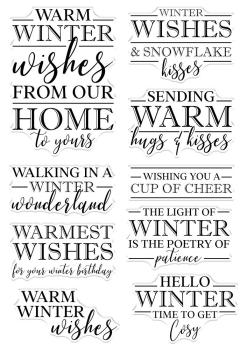 WARM
WINTER
wishes
FROM OUR
HOME
to yours
WALKING IN A
WINTER
wonderland
WARMEST
WISHES
for your winter birthday
WARM
WINTER
wishes
WINTER
WISHES
& SNOWFLAKE
kisses
SENDING
WARM
hugs & kisses
WISHING YOU A
CUP OF CHEER
THE LIGHT OF
WINTER
IS THE POETRY OF
patience
HELLO
WINTER
TIME TO GET
Cosy